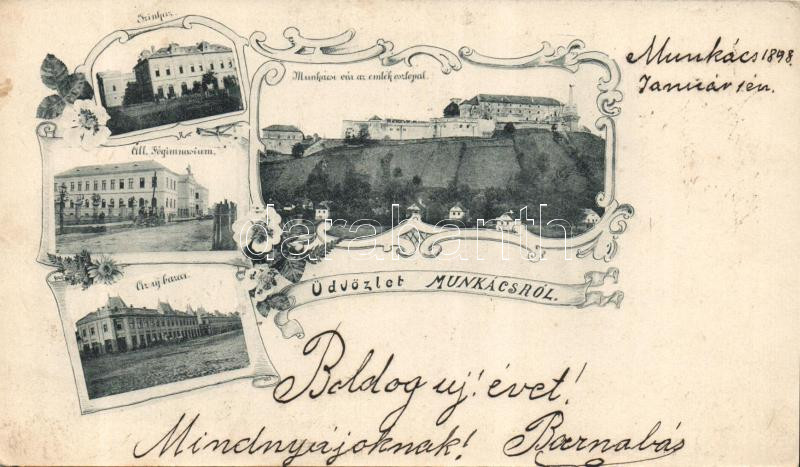 Szinház
Munkácsi vár az emlék oszlopal.
Munkács 1898.
Január 1én.
Áll. Főgimnasium.
Az uj bazár.
Üdvözlet MUNKÁCSRÓL.
darabanth.com
Boldog uj! évet!
Mindnyájoknak! Barnabás